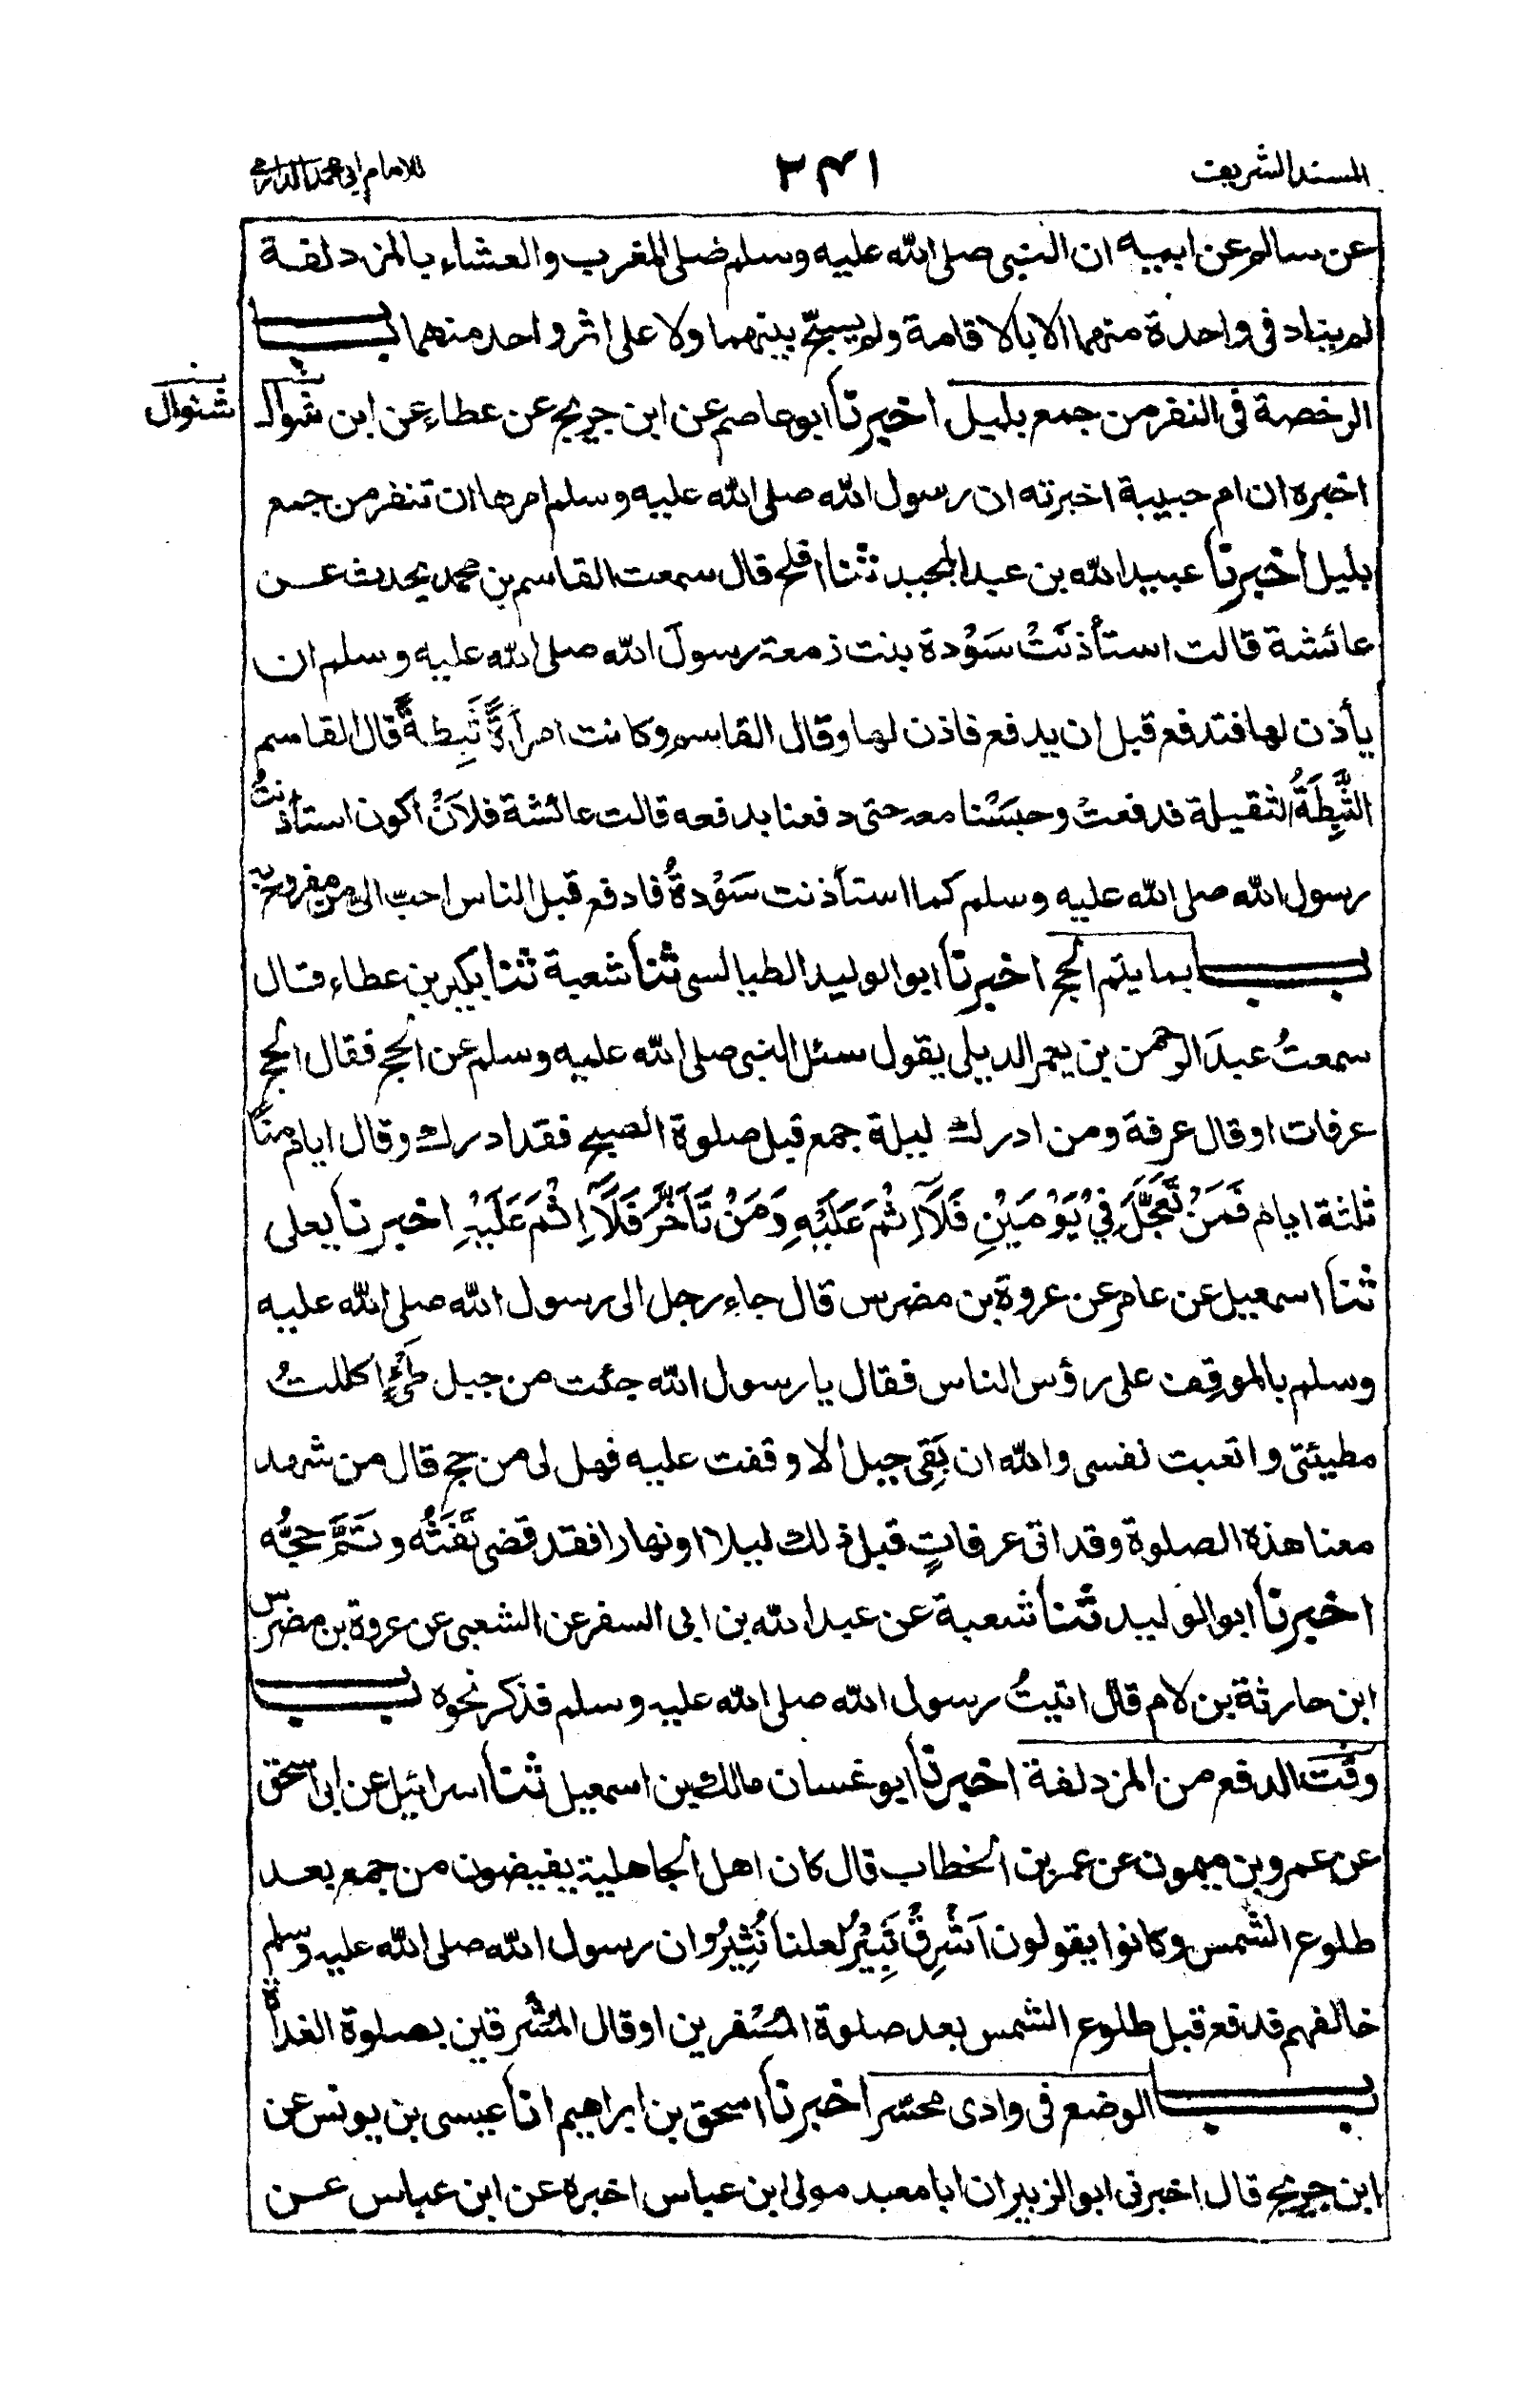 المسند الشريف ٢٤١ للامام ابي محمد الدارمي
عن سالم عن ابيه ان النبي صلى الله عليه وسلم صلى المغرب والعشاء بالمزدلفة
لم يناد في واحدة منهما الا بالاقامة ولم يسبح بينهما ولا على اثر واحد منهما باب
الرخصة في النفر من جمع بليل اخبرنا ابو عاصم عن ابن جريج عن عطاء عن ابن شوال
شنوال
اخبره ان ام حبيبة اخبرته ان رسول الله صلى الله عليه وسلم امرها ان تنفر من جمع
بليل اخبرنا عبيد الله بن عبد المجيد ثنا افلح قال سمعت القاسم بن محمد يحدث عن
عائشة قالت استأذنَتْ سَوْدة بنت زمعة رسولَ الله صلى الله عليه وسلم ان
يأذن لها فتدفع قبل ان يدفع فاذن لها وقال القاسم وكانت امرأةً ثَبِطةً قال القاسم
الثَّبِطَةُ الثقيلة فدفعتْ وحبَسْنا معه حتى دفعنا بدفعه قالت عائشة فلَاَنْ اكون استأذنتُ
رسول الله صلى الله عليه وسلم كما استأذنت سَوْدةُ فادفع قبل الناس احبّ الي من مفروح به
باب بما يتم الحج اخبرنا ابو الوليد الطيالسي ثنا شعبة ثنا بكير بن عطاء قال
سمعتُ عبدَ الرحمن بن يعمر الديلي يقول سئل النبي صلى الله عليه وسلم عن الحج فقال الحج
عرفات او قال عرفة ومن ادرك ليلة جمع قبل صلوة الصبح فقد ادرك وقال ايام منًا
ثلثة ايام فَمَنْ تَعَجَّلَ فِيْ يَوْمَيْنِ فَلَآ اِثْمَ عَلَيْهِ وَمَنْ تَاَخَّرَ فَلَآ اِثْمَ عَلَيْهِ اخبرنا يعلى
ثنا اسمعيل عن عامر عن عروة بن مضرس قال جاء رجل الى رسول الله صلى الله عليه
وسلم بالموقف على رؤس الناس فقال يا رسول الله جئت من جبل طَيْءٍ اكللتُ
مطيئتي واتعبت نفسي والله ان بَقِي جبل الا وقفت عليه فهل لي من حج قال من شهد
معنا هذه الصلوة وقد اتى عرفاتٍ قبل ذلك ليلا او نهارا فقد قضى تَفَثَه وتَمَّ حجُّه
اخبرنا ابو الوليد ثنا شعبة عن عبد الله بن ابي السفر عن الشعبي عن عروة بن مضرس
ابن حارثة بن لام قال اتيتُ رسول الله صلى الله عليه وسلم فذكر نحوه باب
وقت الدفع من المزدلفة اخبرنا ابو غسان مالك بن اسمعيل ثنا اسرائيل عن ابي اسحق
عن عمرو بن ميمون عن عمر بن الخطاب قال كان اهل الجاهلية يفيضون من جمع بعد
طلوع الشمس وكانوا يقولون اَشْرِقْ ثَبِيْرُ لعلنا نُثِيْرُ وان رسول الله صلى الله عليه وسلم
خالفهم فدفع قبل طلوع الشمس بعد صلوة المُسْفرين او قال المُشْرقين بصلوة الغداة
باب الوضع في وادي محسّر اخبرنا اسحق بن ابراهيم انا عيسى بن يونس عن
ابن جريج قال اخبرني ابو الزبير ان ابا معبد مولى ابن عباس اخبره عن ابن عباس عن